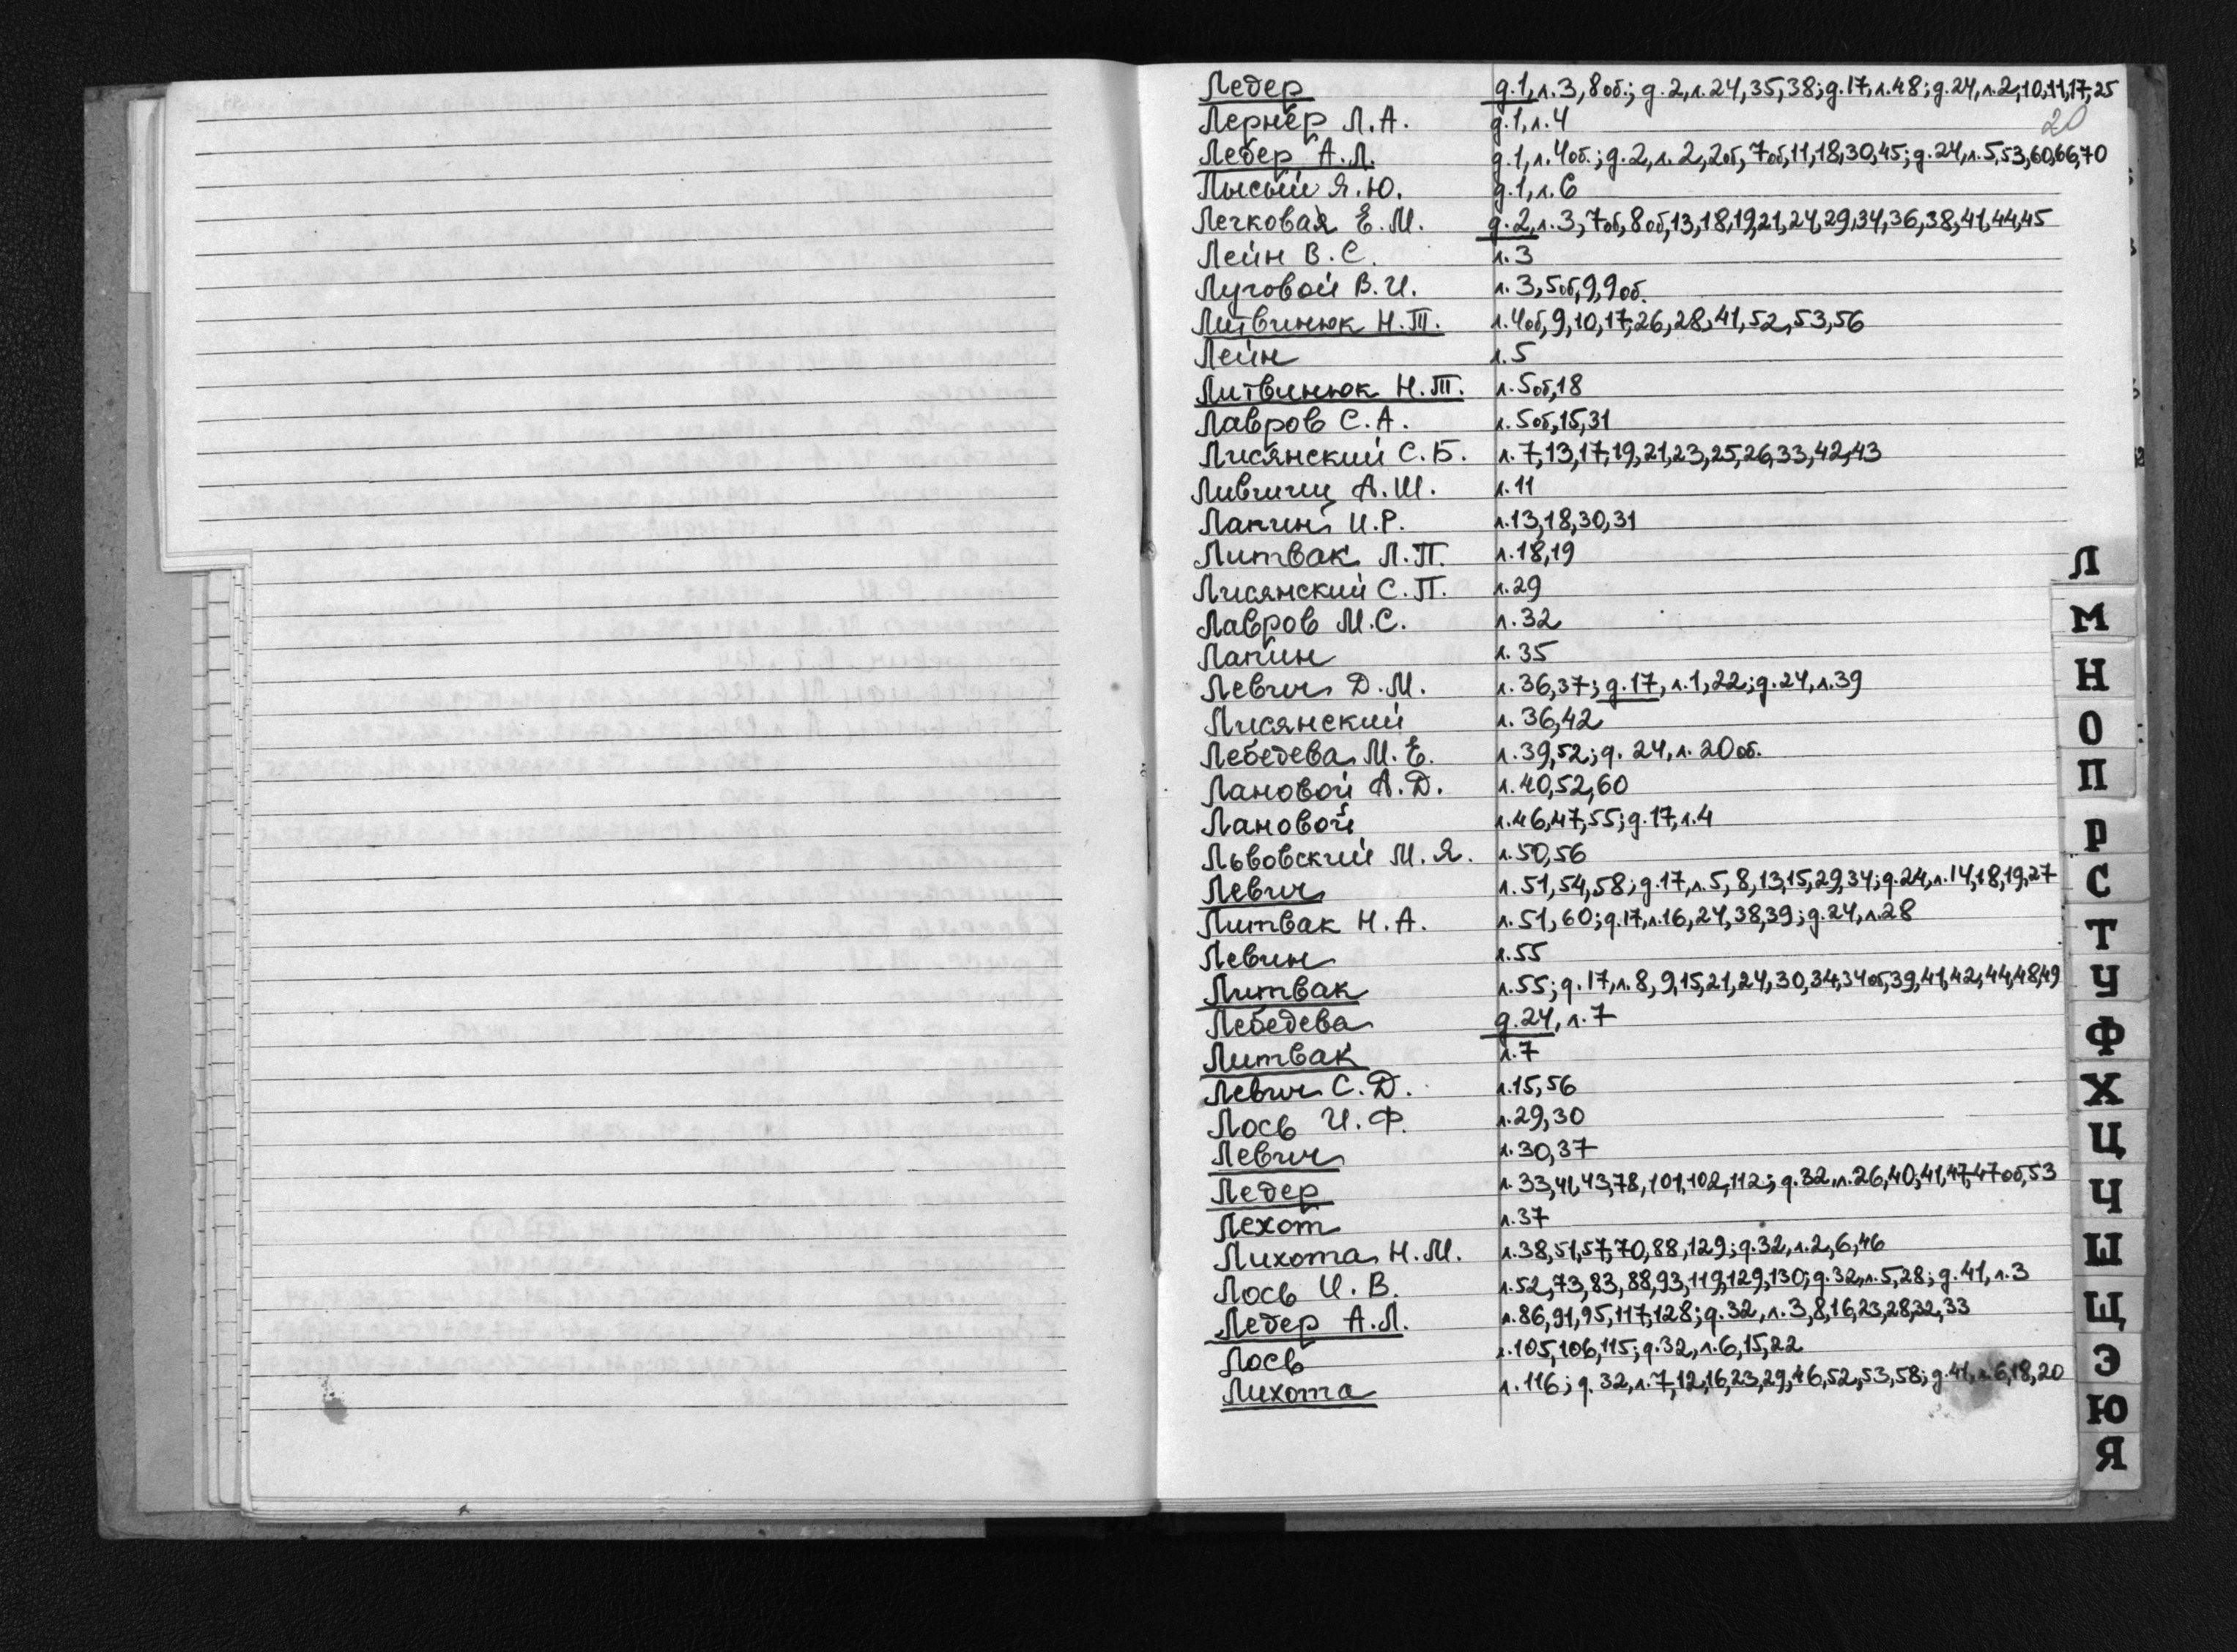 Ледер д.1, л.3, 8об.; д.2, л.24, 35, 38; д.17, л.48; д.24, л.2, 10, 11, 17, 25
20
Лернер Л.А. д.1, л.4
Ледер А.Л. д.1, л.4об.; д.2, л.2, 2об, 7об, 11, 18, 30, 45; д.24, л.5, 53, 60, 66, 70
Лысый Я.Ю. д.1, л.6
Легковая Е.М. д.2, л.3, 7об, 8об, 13, 18, 19, 21, 24, 29, 34, 36, 38, 41, 44, 45
Лейн В.С. л.3
Луговой В.И. л.3, 5об, 9, 9об.
Литвинюк Н.Т. л.4об, 9, 10, 17, 26, 28, 41, 52, 53, 56
Лейн л.5
Литвинюк Н.Т. л.5об, 18
Лавров С.А. л.5об, 15, 31
Лисянский С.Б. л.7, 13, 17, 19, 21, 23, 25, 26, 33, 42, 43
Лившиц А.Ш. л.11
Лапин И.Р. л.13, 18, 30, 31
Литвак Л.П. л.18, 19
Лисянский С.П. л.29
Лавров М.С. л.32
Лапин л.35
Левич Д.М. л.36, 37; д.17, л.1, 22; д.24, л.39
Лисянский л.36, 42
Лебедева М.Е. л.39, 52; д.24, л.20об.
Лановой А.Д. л.40, 52, 60
Лановой л.46, 47, 55; д.17, л.4
Львовский М.Я. л.50, 56
Левич л.51, 54, 58; д.17, л.5, 8, 13, 15, 29, 34; д.24, л.14, 18, 19, 27
Литвак Н.А. л.51, 60; д.17, л.16, 24, 38, 39; д.24, л.28
Левин л.55
Литвак л.55; д.17, л.8, 9, 15, 21, 24, 30, 34, 34об, 39, 41, 42, 44, 48, 49
Лебедева д.24, л.7
Литвак л.7
Левич С.Д. л.15, 56
Лось И.Ф. л.29, 30
Левич л.30, 37
Ледер л.33, 41, 43, 78, 101, 102, 112; д.32, л.26, 40, 41, 47, 47об, 53
Лехот л.37
Лихота Н.М. л.38, 51, 57, 70, 88, 129; д.32, л.2, 6, 46
Лось И.В. л.52, 73, 83, 88, 93, 119, 129, 130; д.32, л.5, 28; д.41, л.3
Ледер А.Л. л.86, 91, 95, 117, 128; д.32, л.3, 8, 16, 23, 28, 32, 33
Лось л.105, 106, 115; д.32, л.6, 15, 22
Лихота л.116; д.32, л.7, 12, 16, 23, 29, 46, 52, 53, 58; д.41, л.6, 18, 20
Л
М
Н
О
П
Р
С
Т
У
Ф
Х
Ц
Ч
Ш
Щ
Э
Ю
Я